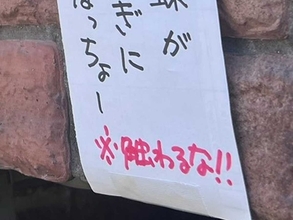 蛛が
ぎに
っちょー
※触わるな!!